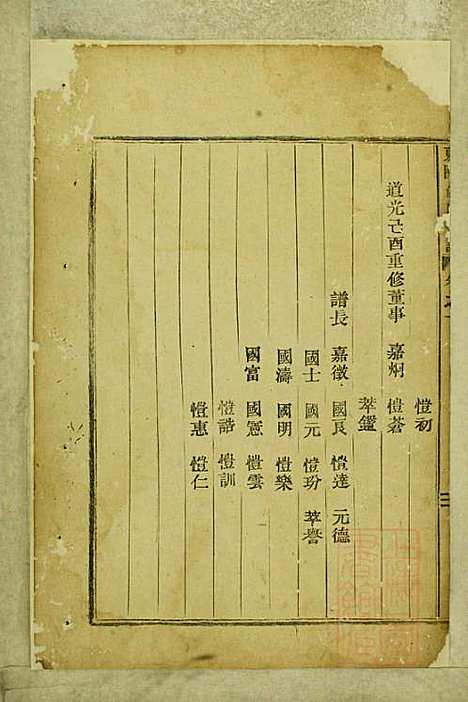 愷初
道光己酉重修董事 嘉炯 愷蒼
萃鑑
譜長 嘉徵 國長 愷達 元德
國士 國元 愷玢 萃譽
國濤 國明 愷樂
國富 國憲 愷雲
愷誥 愷訓
愷惠 愷仁